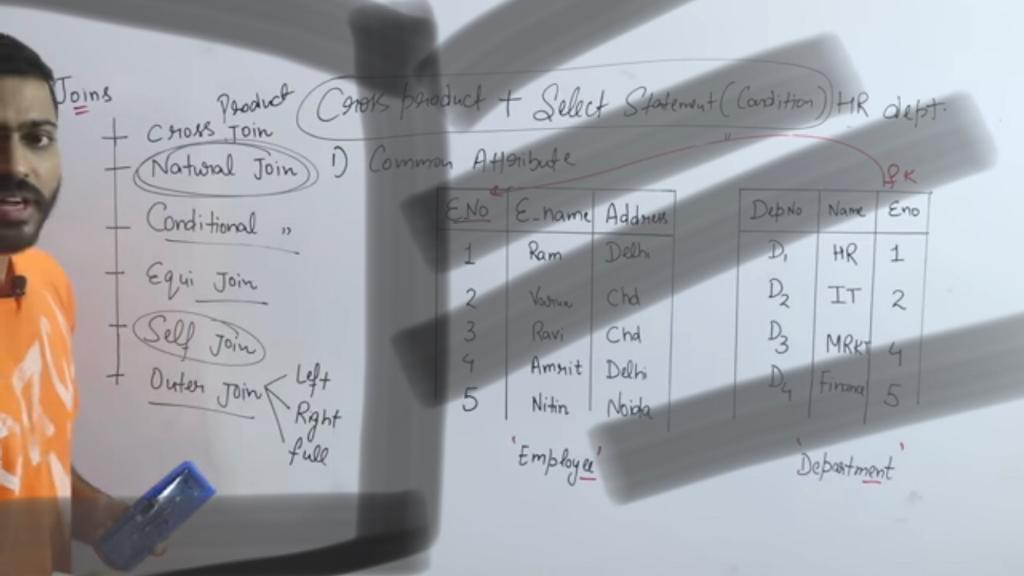 Joins
Product
Cross Join
Natural Join
Conditional "
Equi Join
Self Join
Outer Join
Left
Right
full
Cross product + Select Statement (Condition) HR dept.
1) Common Attribute
E.No E_name Address
1 Ram Delhi
2 Varun Chd
3 Ravi Chd
4 Amrit Delhi
5 Nitin Noida
'Employee'
DepNo Name Eno
D1 HR 1
D2 IT 2
D3 MRKT 4
D4 5
'Department'